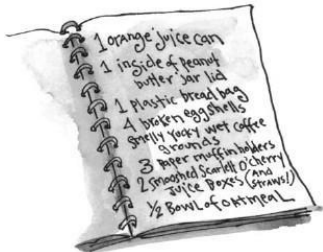 1 orange juice can
1 inside of peanut
butter jar lid
1 plastic bread bag
4 broken eggshells
smelly yucky wet coffee
grounds
3 paper muffin holders
2 smooshed Scarlett O'cherry
juice boxes (and
straws!)
1/2 Bowl of oatmeal